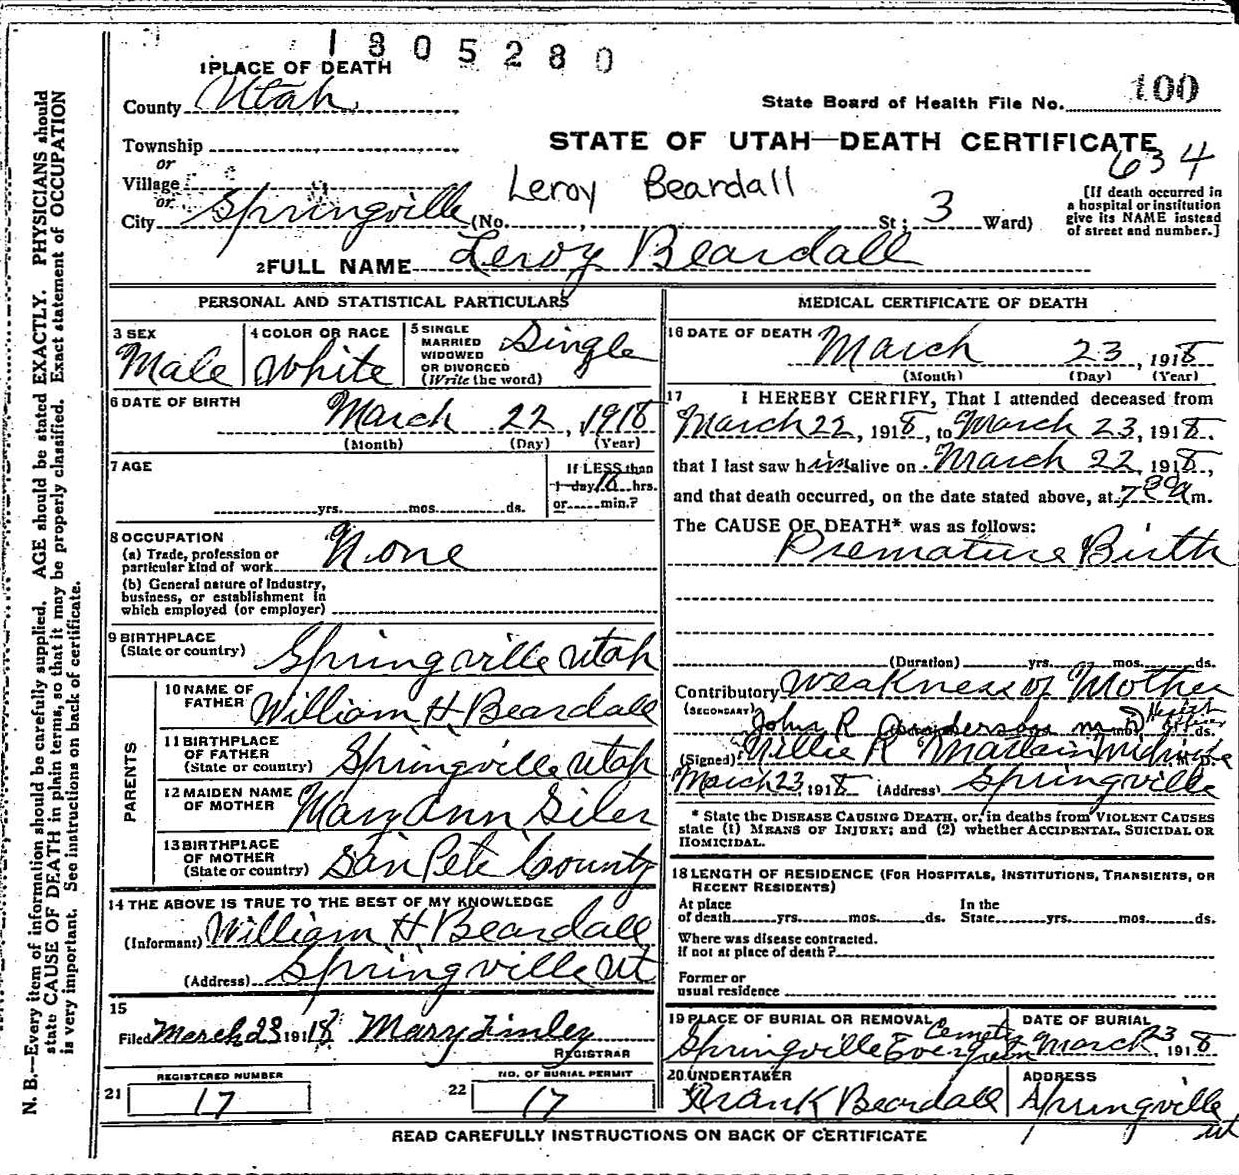 1305280
1 PLACE OF DEATH
County Utah
State Board of Health File No. 100
Township
STATE OF UTAH—DEATH CERTIFICATE
634
or
Village
Leroy Beardall
or
City Springville (No. , St; 3 Ward)
[If death occurred in
a hospital or institution
give its NAME instead
of street and number.]
2 FULL NAME Leroy Beardall
PERSONAL AND STATISTICAL PARTICULARS
3 SEX
Male
4 COLOR OR RACE
White
5 SINGLE
MARRIED
WIDOWED
OR DIVORCED
(Write the word)
Single
6 DATE OF BIRTH
March 22, 1918
(Month) (Day) (Year)
7 AGE
yrs. mos. ds.
If LESS than
1 day, 10 hrs.
or min.?
8 OCCUPATION
(a) Trade, profession or
particular kind of work None
(b) General nature of Industry,
business, or establishment in
which employed (or employer)
9 BIRTHPLACE
(State or country) Springville Utah
PARENTS
10 NAME OF
FATHER William H Beardall
11 BIRTHPLACE
OF FATHER
(State or country) Springville Utah
12 MAIDEN NAME
OF MOTHER Mary Ann Giles
13 BIRTHPLACE
OF MOTHER
(State or country) San Pete County
14 THE ABOVE IS TRUE TO THE BEST OF MY KNOWLEDGE
(Informant) William H Beardall
(Address) Springville Ut
15
Filed March 23 1918 Mary Finley
REGISTRAR
REGISTERED NUMBER
21 17
NO. OF BURIAL PERMIT
22 17
MEDICAL CERTIFICATE OF DEATH
16 DATE OF DEATH
March 23, 1918
(Month) (Day) (Year)
17 I HEREBY CERTIFY, That I attended deceased from
March 22, 1918, to March 23, 1918.
that I last saw him alive on March 22, 1918,
and that death occurred, on the date stated above, at 7 30 a m.
The CAUSE OF DEATH* was as follows:
Premature Birth
(Duration) yrs. mos. ds.
Contributory Weakness of Mother
(SECONDARY)
John R Anderson M D Health Officer
(Signed) Nillie R Midwife
March 23 1918 (Address) Springville
* State the DISEASE CAUSING DEATH, or, in deaths from VIOLENT CAUSES
state (1) MEANS OF INJURY; and (2) whether ACCIDENTAL, SUICIDAL OR
HOMICIDAL.
18 LENGTH OF RESIDENCE (FOR HOSPITALS, INSTITUTIONS, TRANSIENTS, OR
RECENT RESIDENTS)
At place
of death yrs. mos. ds.
In the
State yrs. mos. ds.
Where was disease contracted.
if not at place of death?
Former or
usual residence
19 PLACE OF BURIAL OR REMOVAL
Springville Evergreen
DATE OF BURIAL
March 23 1918
20 UNDERTAKER
Frank Beardall
ADDRESS
Springville
ut
READ CAREFULLY INSTRUCTIONS ON BACK OF CERTIFICATE
N. B.—Every item of information should be carefully supplied. AGE should be stated EXACTLY. PHYSICIANS should
state CAUSE OF DEATH in plain terms, so that it may be properly classified. Exact statement of OCCUPATION
is very important. See instructions on back of certificate.